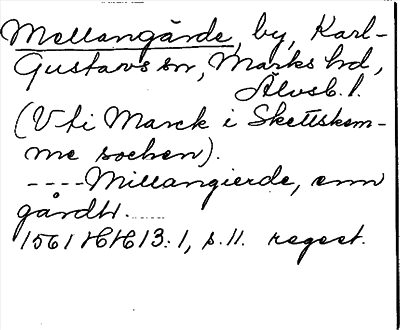 Mellangärde, by, Karl-
Gustavs sn, Marks hd,
Älvsb. l.
(Vti Marck i Skettskem-
me sochen).
----Millangierde, enn
gårdh. ......
1561 HH 13:1, s. 11. regest.